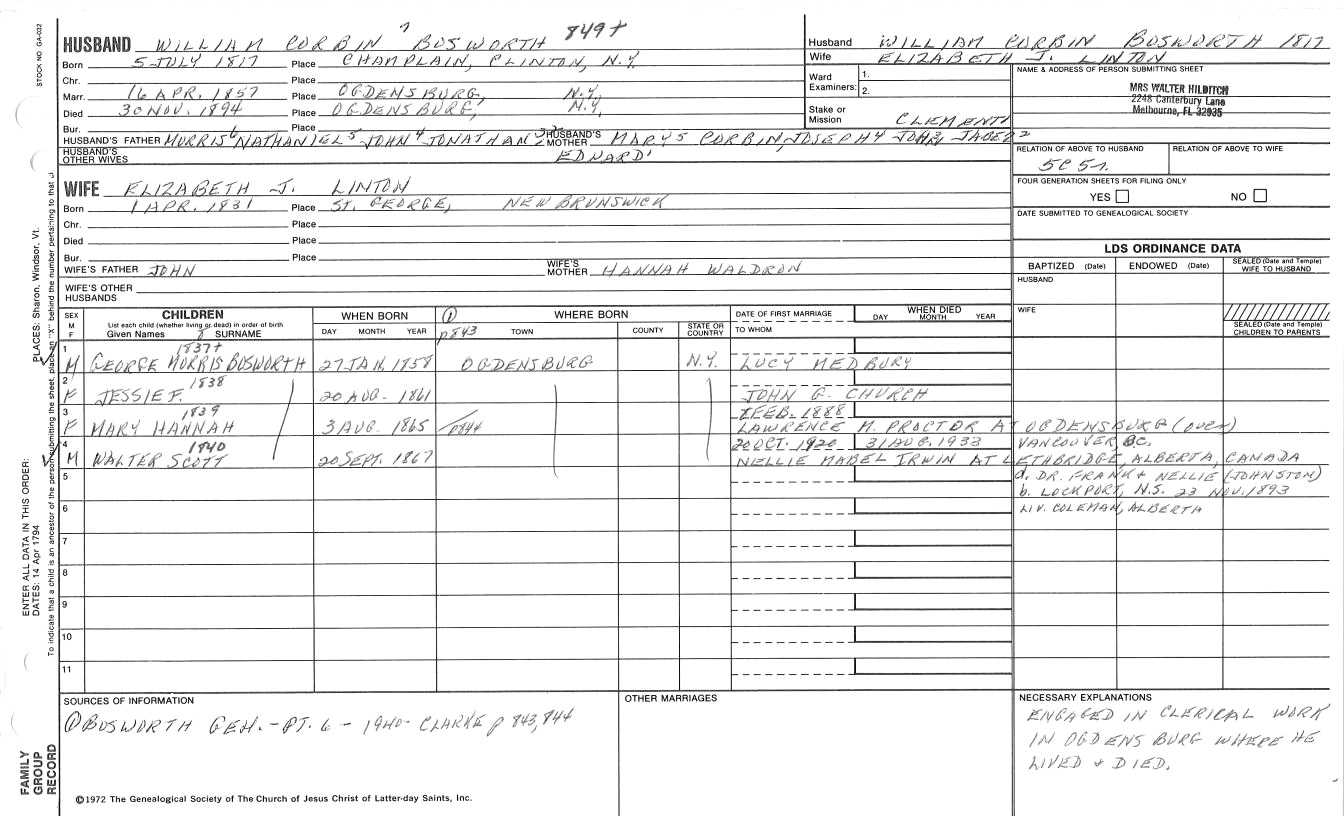 STOCK NO GA-032
HUSBAND WILLIAM CORBIN 7 BOSWORTH 849+
Born 5 JULY 1817 Place CHAMPLAIN, CLINTON, N.Y.
Chr. Place
Marr. 16 APR. 1857 Place OGDENSBURG, N.Y.
Died 30 NOV. 1894 Place OGDENSBURG, N.Y.
Bur. Place
HUSBAND'S FATHER MORRIS 6 NATHANIEL 5 JOHN 4 JONATHAN 3 2 HUSBAND'S MOTHER MARY 5 CORBIN, JOSEPH 4 JOHN, JABEZ 2
HUSBAND'S OTHER WIVES EDWARD 1
Husband WILLIAM CORBIN BOSWORTH 1817
Wife ELIZABETH J. LINTON
Ward Examiners: 1. 2.
Stake or Mission CLEMENT
NAME & ADDRESS OF PERSON SUBMITTING SHEET
MRS WALTER HILDITCH
2248 Canterbury Lane
Melbourne, FL 32935
RELATION OF ABOVE TO HUSBAND RELATION OF ABOVE TO WIFE
5C 5r.
FOUR GENERATION SHEETS FOR FILING ONLY
YES NO
DATE SUBMITTED TO GENEALOGICAL SOCIETY
WIFE ELIZABETH J. LINTON
Born 1 APR. 1831 Place ST. GEORGE, NEW BRUNSWICK
Chr. Place
Died Place
Bur. Place
WIFE'S FATHER JOHN WIFE'S MOTHER HANNAH WALDRON
WIFE'S OTHER HUSBANDS
LDS ORDINANCE DATA
BAPTIZED (Date) ENDOWED (Date) SEALED (Date and Temple) WIFE TO HUSBAND
HUSBAND
WIFE
SEALED (Date and Temple) CHILDREN TO PARENTS
SEX M F CHILDREN WHEN BORN ① WHERE BORN DATE OF FIRST MARRIAGE WHEN DIED
List each child (whether living or dead) in order of birth
Given Names 8 SURNAME DAY MONTH YEAR p843 TOWN COUNTY STATE OR COUNTRY TO WHOM DAY MONTH YEAR
1 1837+
M GEORGE MORRIS BOSWORTH 27 JAN. 1858 OGDENSBURG N.Y. LUCY MEDBURY
2 1838
F JESSIE F. 20 AUG. 1861 JOHN G. CHURCH
3 1839 FEB. 1888
F MARY HANNAH 3 AUG. 1865 p844 LAWRENCE M. PROCTOR AT OGDENSBURG (OVER)
4 1840 20 OCT. 1920 31 AUG. 1933 VANCOUVER, BC.
M WALTER SCOTT 20 SEPT. 1867 NELLIE MABEL IRWIN AT LETHBRIDGE, ALBERTA, CANADA
5 d. DR. FRANK + NELLIE (JOHNSTON)
b. LOCKPORT, N.S. 23 NOV. 1893
6 LIV. COLEMAN, ALBERTA
7
8
9
10
11
SOURCES OF INFORMATION
① BOSWORTH GEN. - PT. 6 - 1940 - CLARKE p 843, 844
OTHER MARRIAGES
NECESSARY EXPLANATIONS
ENGAGED IN CLERICAL WORK
IN OGDENSBURG WHERE HE
LIVED + DIED.
©1972 The Genealogical Society of The Church of Jesus Christ of Latter-day Saints, Inc.
FAMILY
GROUP
RECORD
ENTER ALL DATA IN THIS ORDER:
DATES: 14 Apr 1794
PLACES: Sharon, Windsor, Vt.
To indicate that a child is an ancestor of the person submitting the sheet, place an "X" behind the number pertaining to that